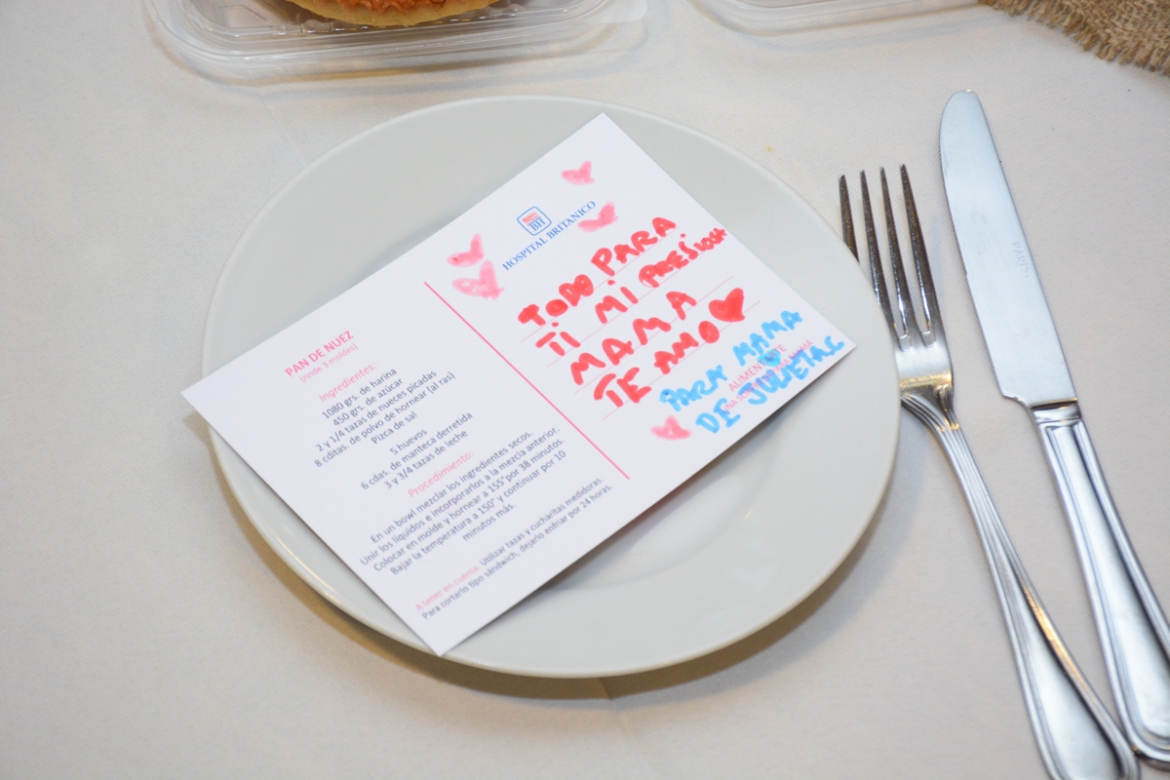 PAN DE NUEZ
(rinde 3 moldes)
Ingredientes:
1080 grs. de harina
450 grs. de azúcar
2 y 1/4 tazas de nueces picadas
8 cditas. de polvo de hornear (al ras)
Pizca de sal
5 huevos
6 cdas. de manteca derretida
3 y 3/4 tazas de leche
Procedimiento:
En un bowl mezclar los ingredientes secos.
Unir los líquidos e incorporarlos a la mezcla anterior.
Colocar en molde y hornear a 155° por 38 minutos.
Bajar la temperatura a 150° y continuar por 10
minutos más.
A tener en cuenta: Utilizar tazas y cucharitas medidoras.
Para cortarlo tipo sándwich, dejarlo enfriar por 24 horas.
BH
HOSPITAL BRITANICO
TODO PARA
TI MI PRESIOSA
MAMA
TE AMO
PARA MAMA
DE JULIETAC